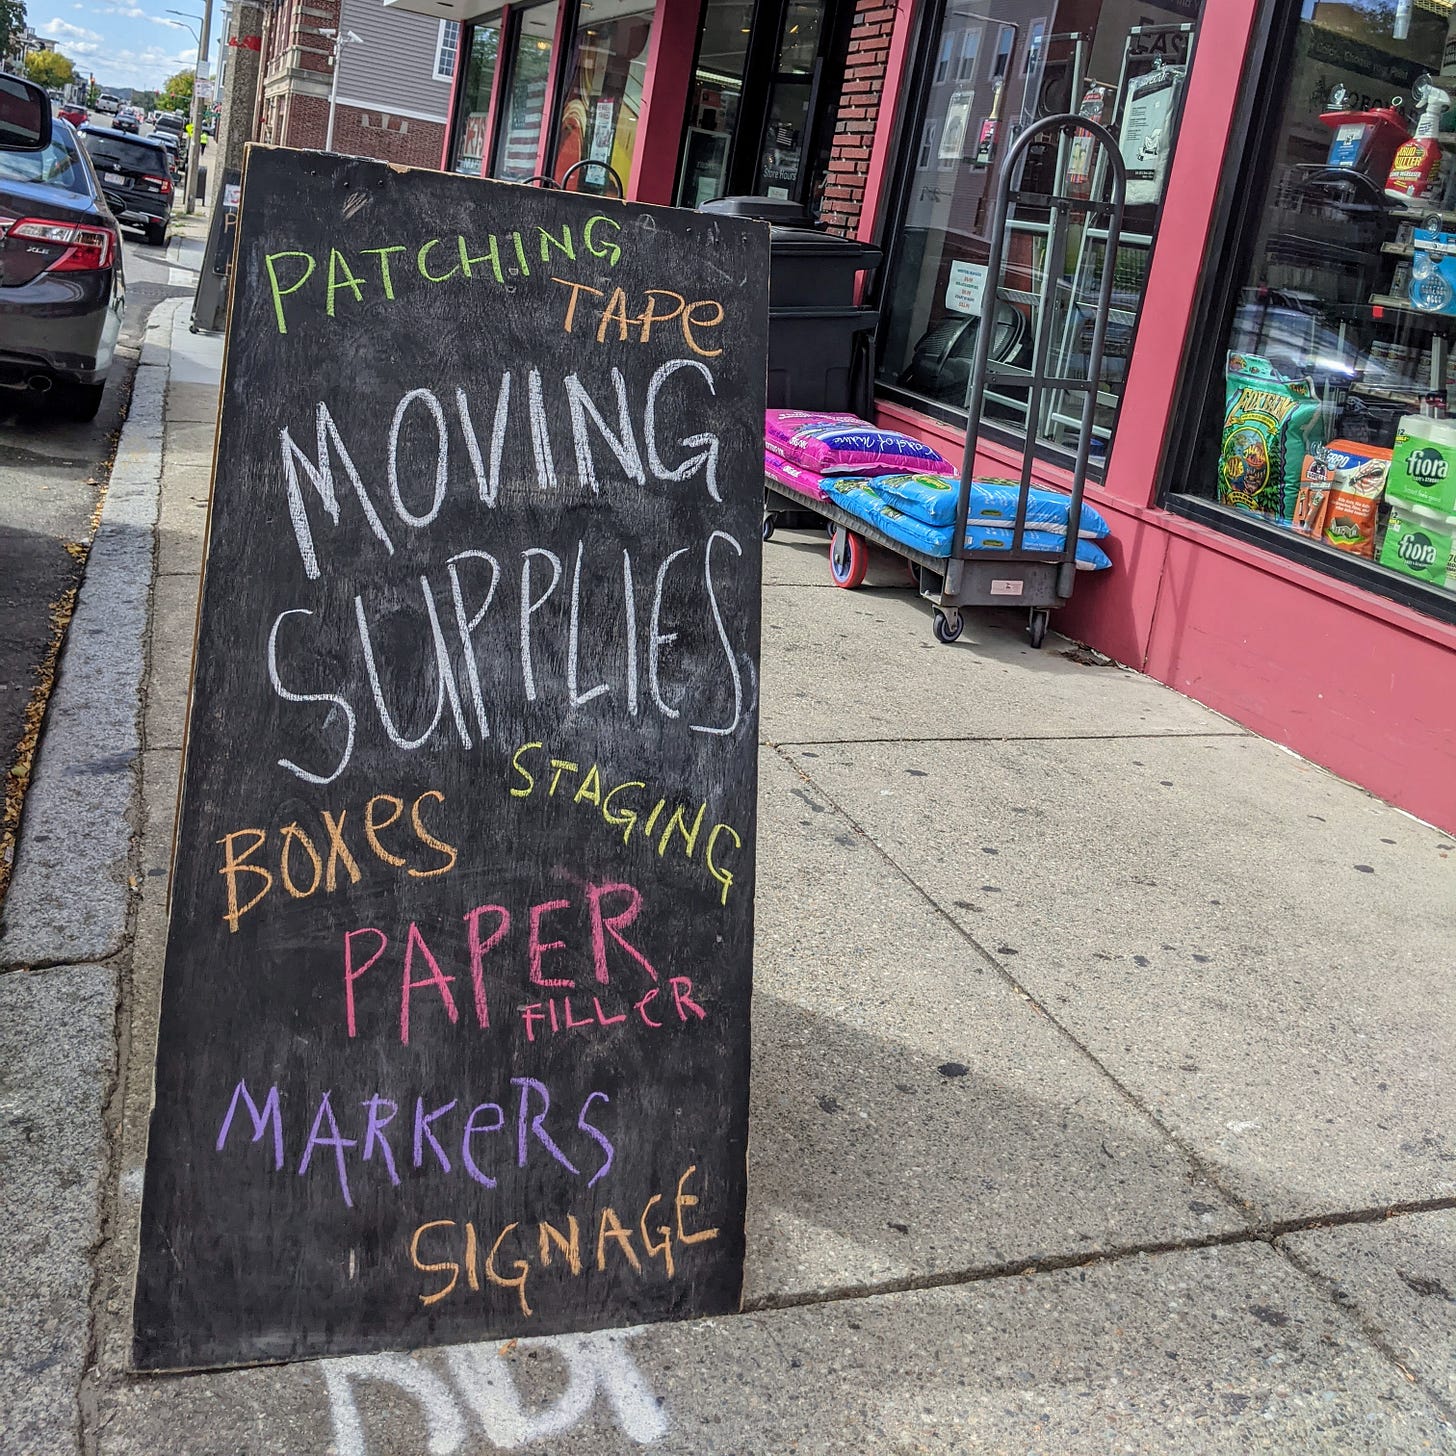 PATCHING
TAPe
MOVING
SUPPLIES
STAGING
BOXes
PAPER
FILLeR
MARKeRS
SIGNAGE
Store Hours
Coast of Maine
fiora
fiora
XLE